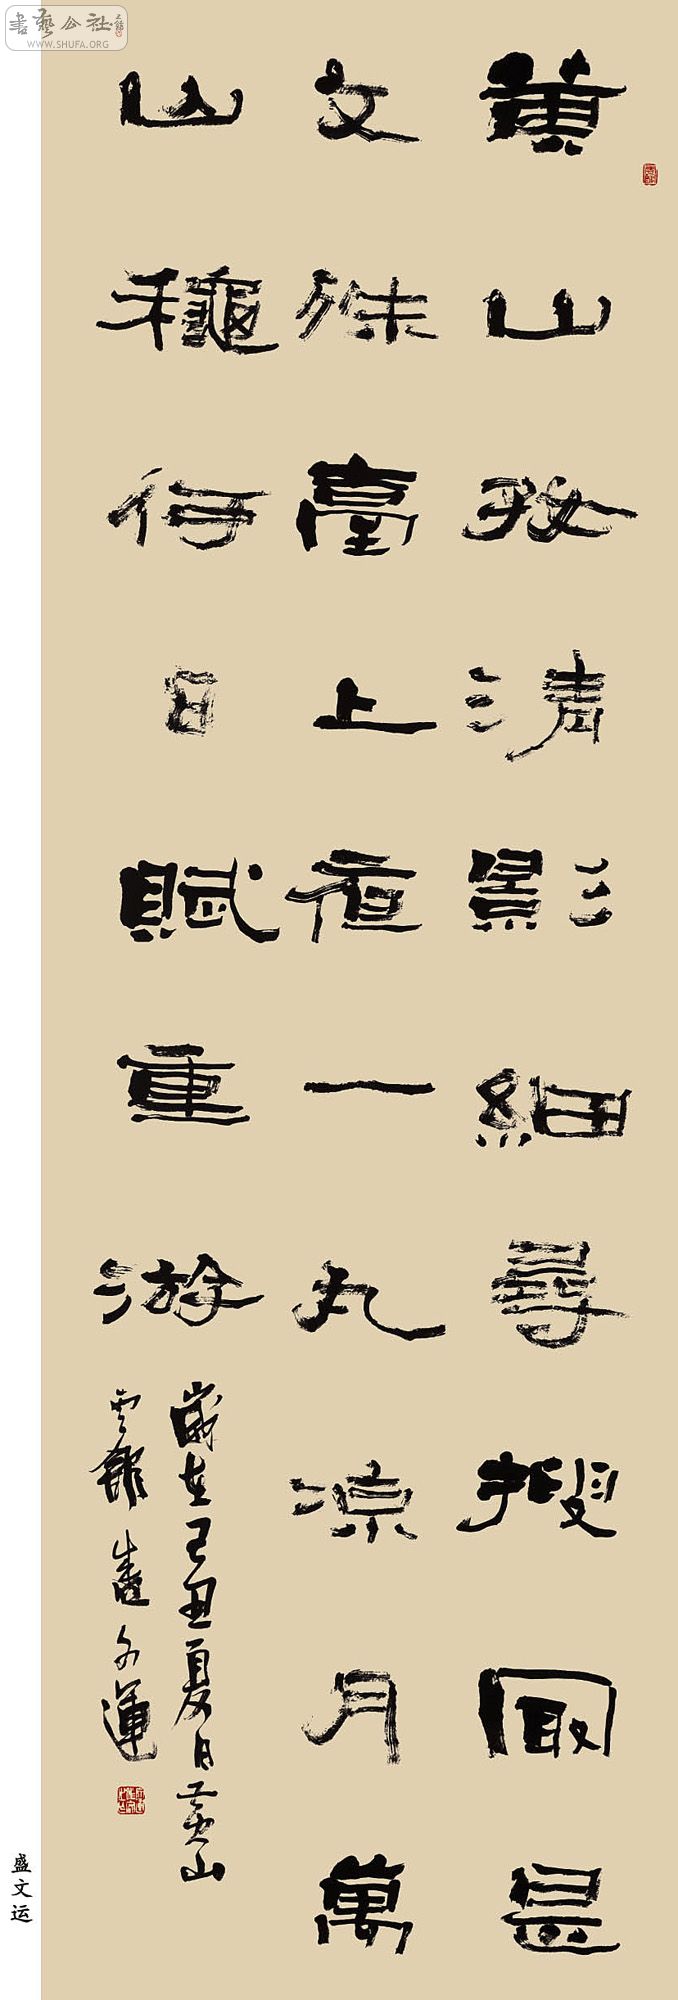 書藝公社
WWW.SHUFA.ORG
黄山清影細尋搜冣是
文殊臺上夜一丸凉月萬
山穐何日賦重游
歲在己丑夏日黄山
雲盛文運
盛文运